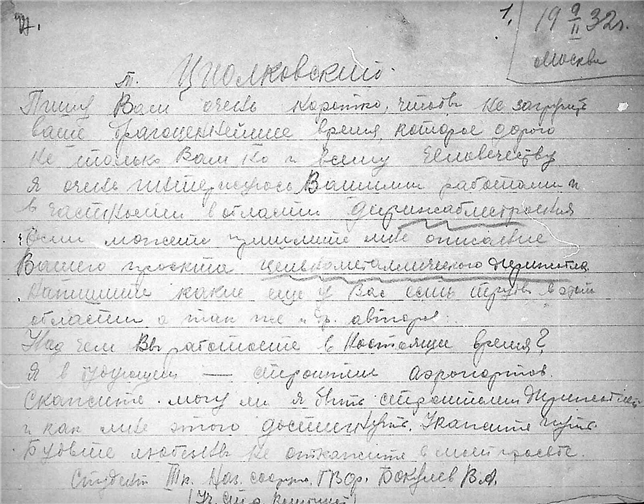 1.
19 9/II 32 г.
Москва
т. Циолковский.
Пишу Вам очень коротко, чтобы не загружать
ваше драгоценнейшее время, которое дорого
не только Вам но и всему человечеству
Я очень интересуюсь Вашими работами и
в частности в области дирижаблестроения
Если можете пришлите мне описание
Вашего проекта цельнометаллического дирижабля
Напишите какие еще у Вас есть труды в этой
области а так же и др. авторов.
Над чем Вы работаете в настоящи время?
Я в будущем — строитель аэропортов.
Скажите могу ли я быть строителем дирижаблей
и как мне этого достигнуть. Укажите путь.
Будьте любезны не откажите в моей просьбе.
Студент ГВФ. В. А.